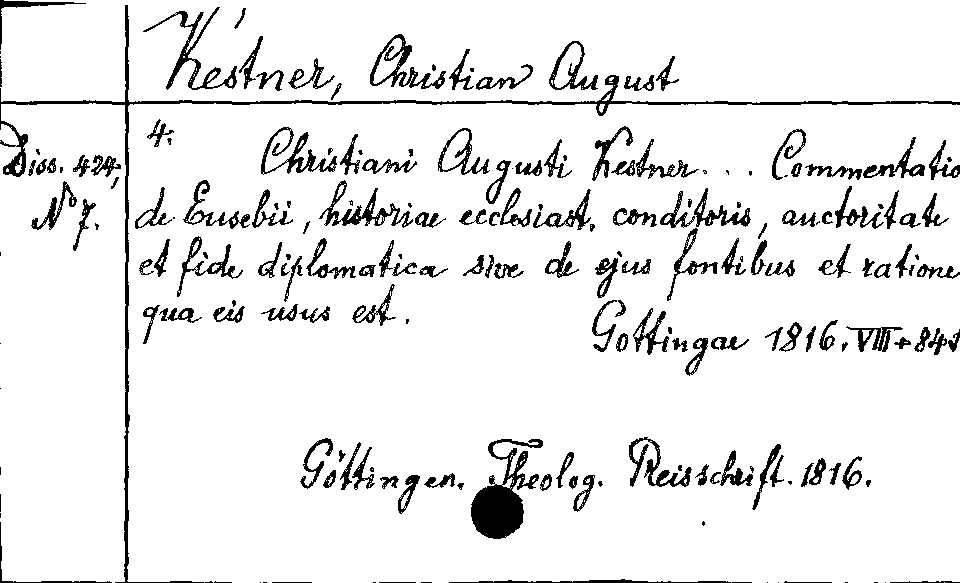 Kestner, Christian August
Diss. 424,
No 7.
4.
Christiani Augusti Kestner... Commentatio
de Eusebii, historiae ecclesiast. conditoris, auctoritate
et fide diplomatica sive de ejus fontibus et ratione
qua eis usus est.
Gottingae 1816. VIII + 84 s
Göttingen. Theolog. Preisschrift. 1816.